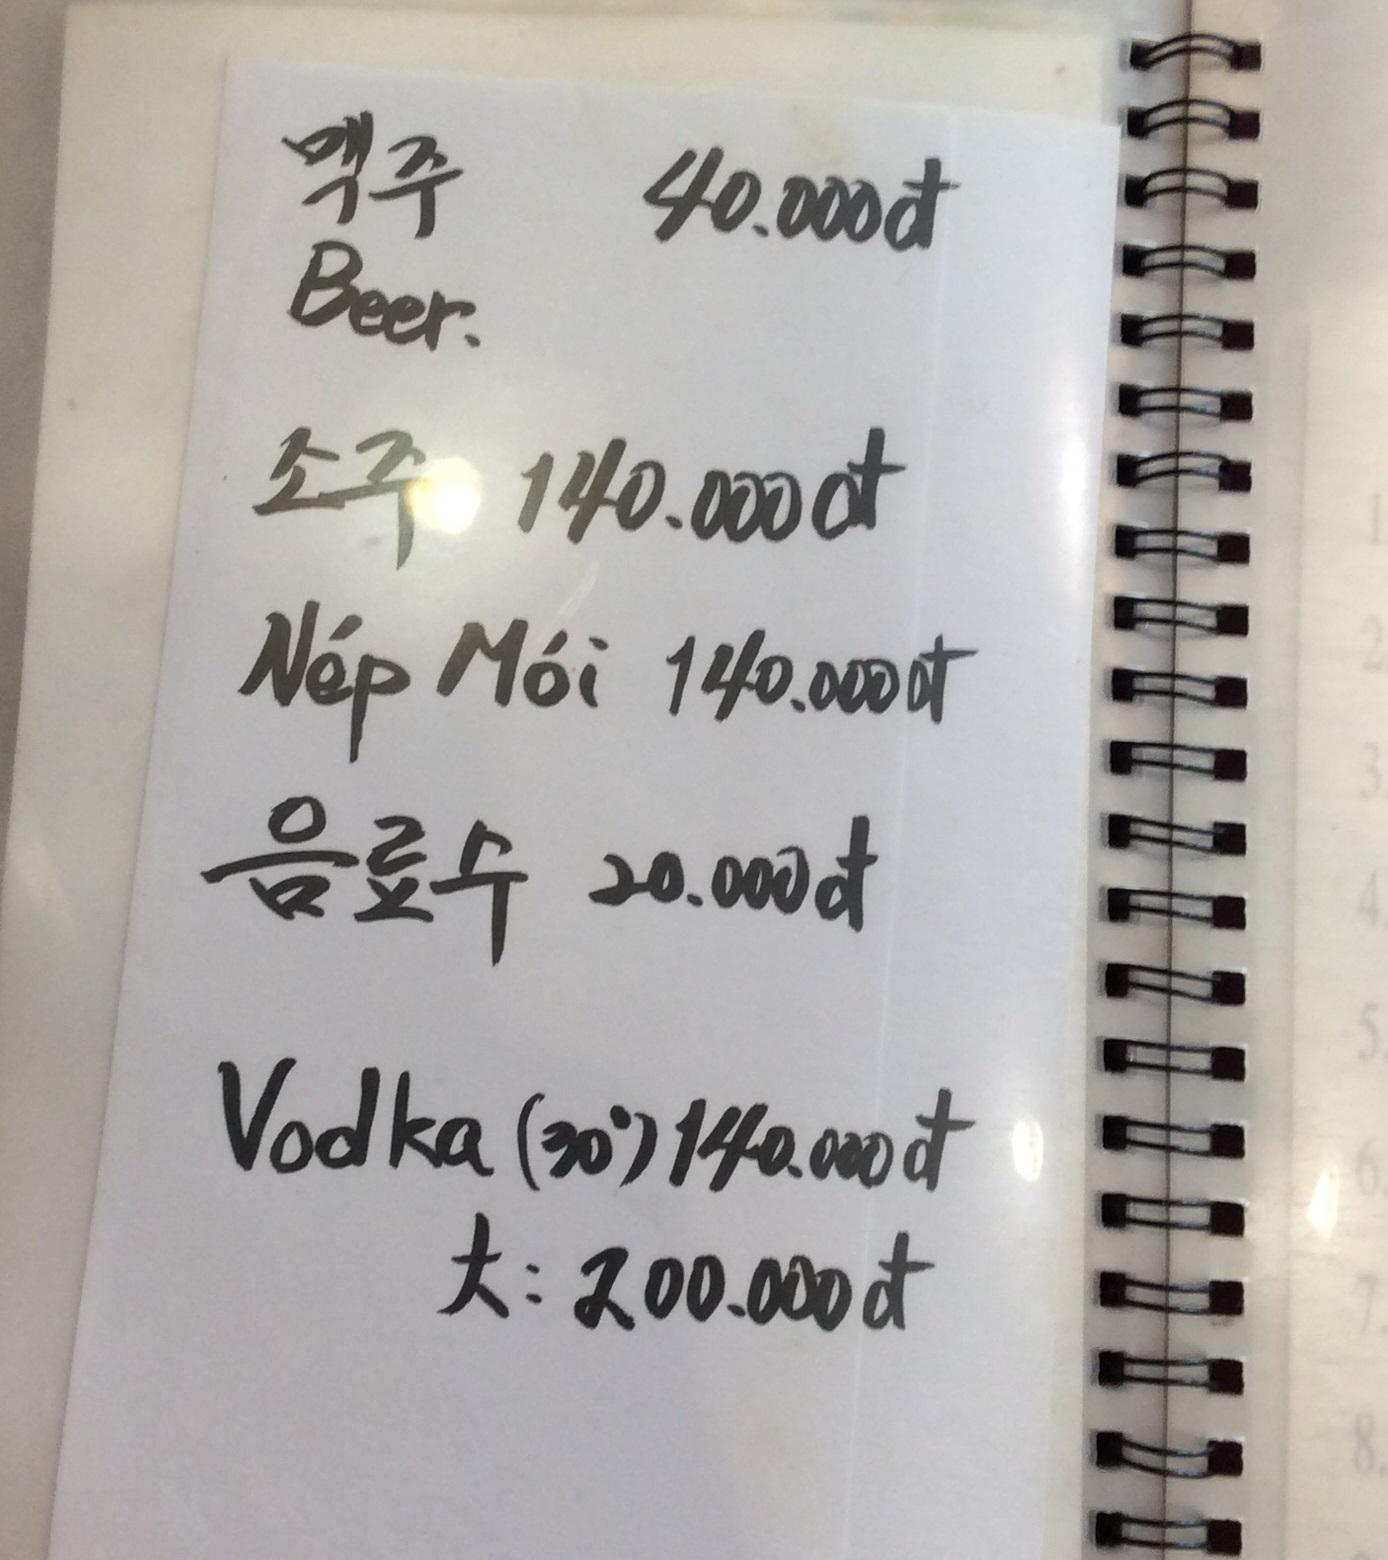 맥주 40.000đ
Beer.
소주 140.000đ
Nép Mói 140.000đ
음료수 20.000đ
Vodka (30°) 140.000đ
大: 200.000đ
1.
2.
3.
4.
5.
6.
7.
8.